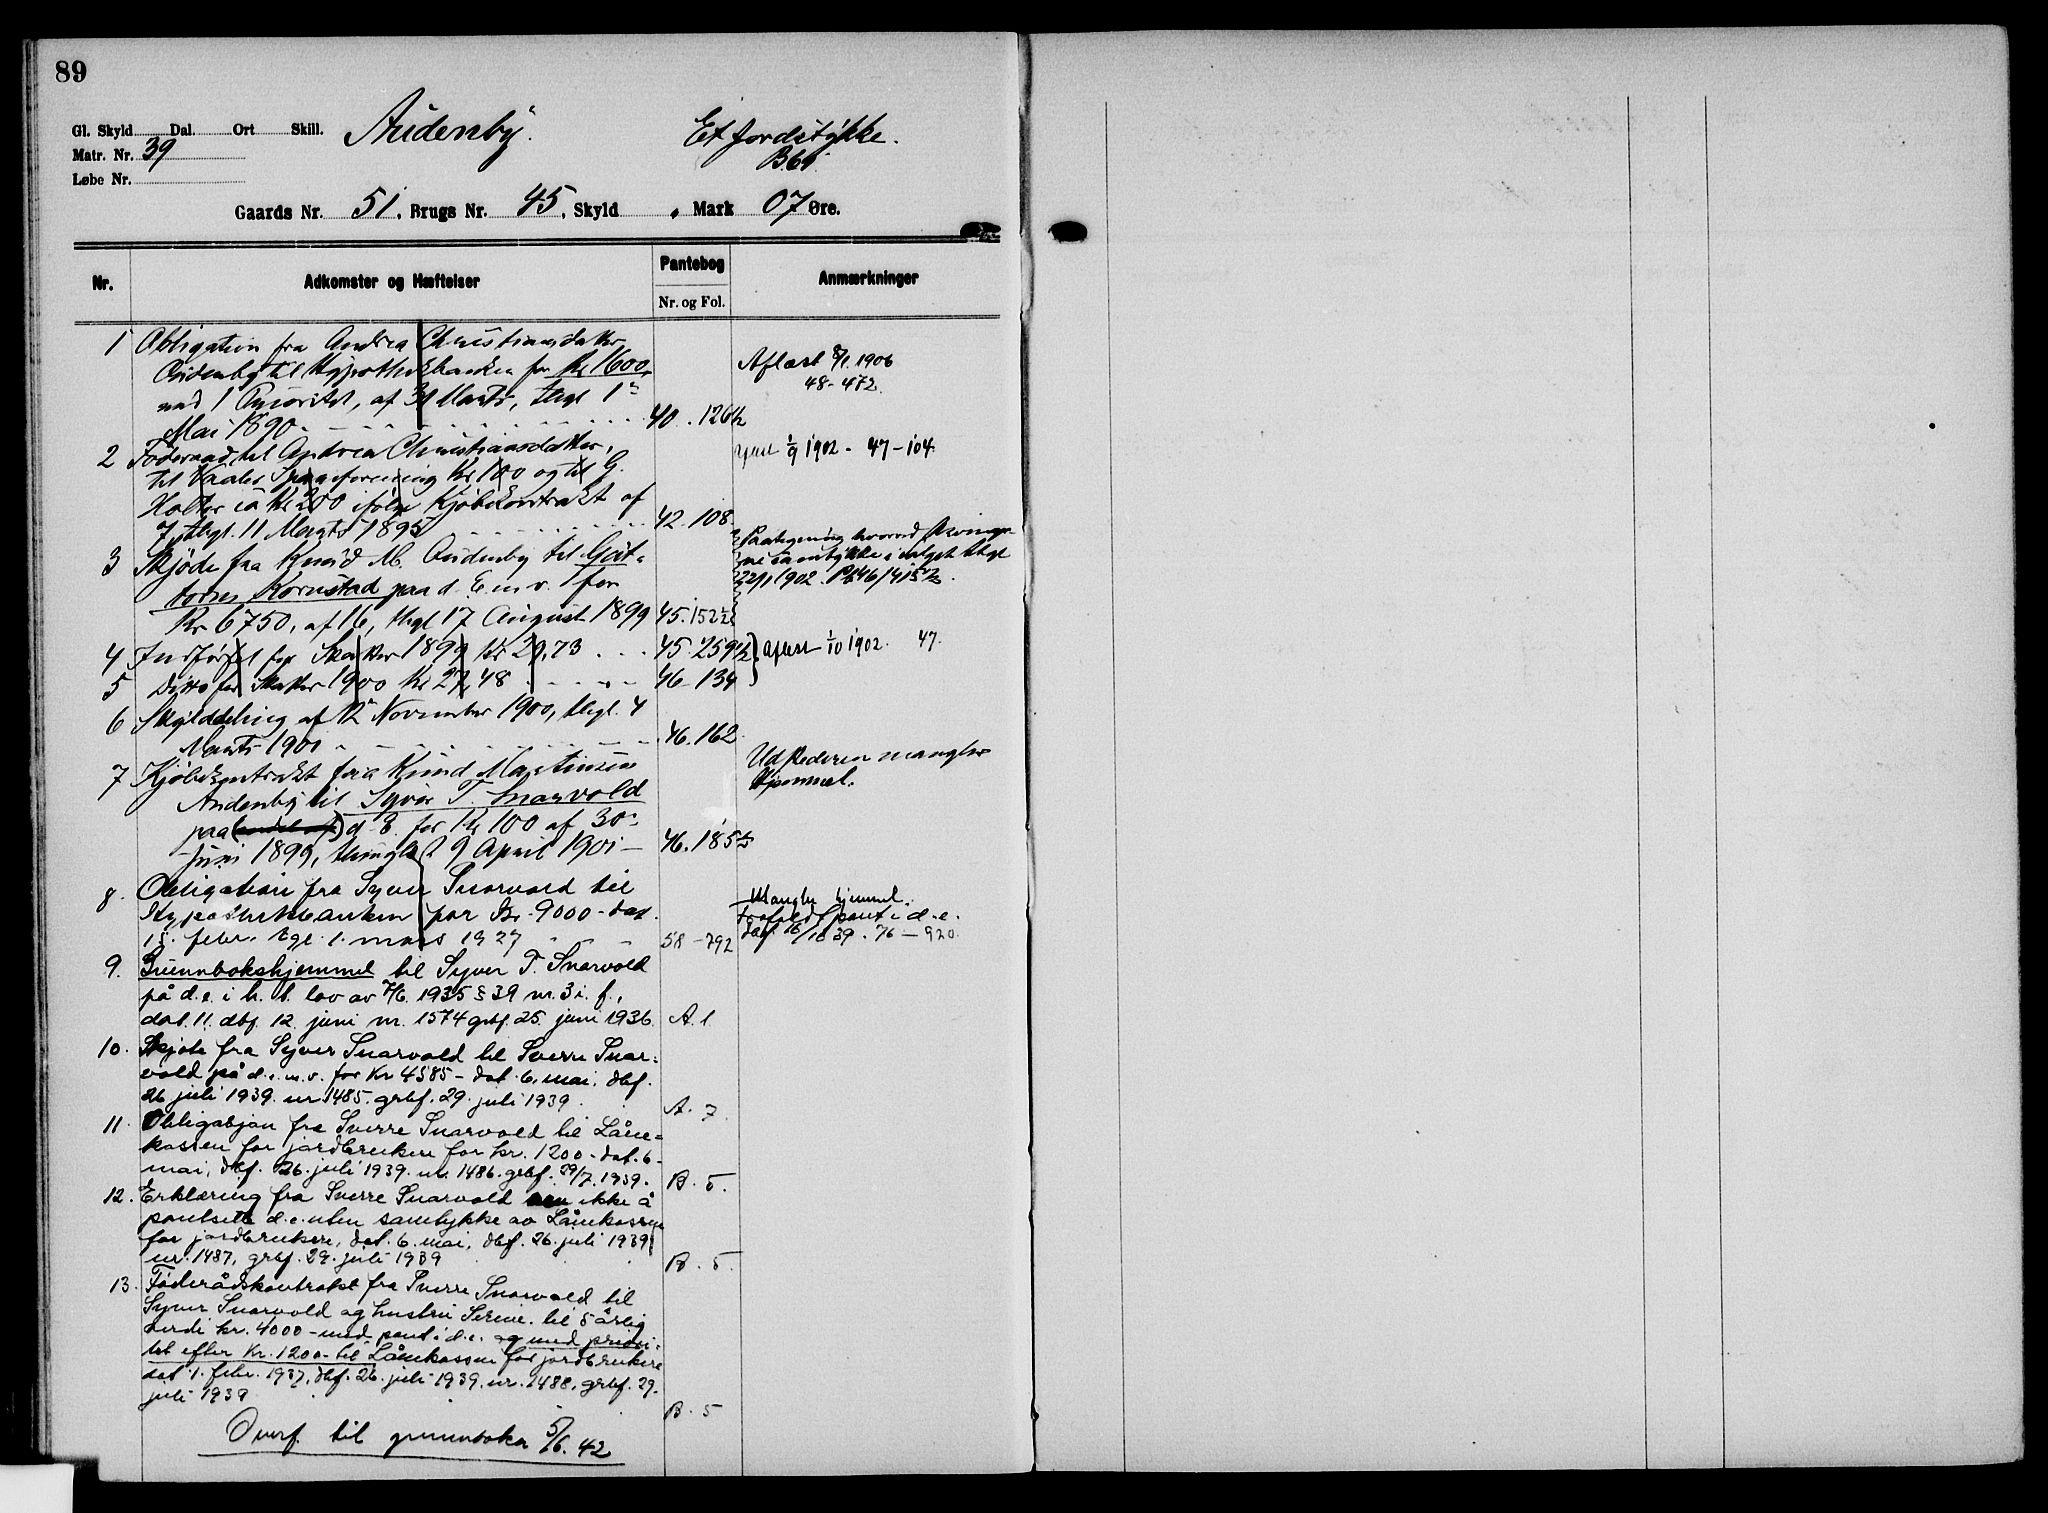 89
Gl. Skyld Dal. Ort Skill. Audenby. Et Jordstykke.
Matr. Nr. 39
Løbe Nr.
Gaards Nr. 51, Brugs Nr. 45, Skyld , Mark 07 Øre.
Nr. Adkomster og Hæftelser Pantebog Anmærkninger
Nr. og Fol.
1 Obligation fra Andrea Christiansdatter
Audenby til Hypothekbanken for Kr 1600,
med 1 Prioritet, af 31 Marts, thgl 1ste
Mai 1890 40. 126½
Aflæst 8/1. 1906
48-472.
2 Føderaad til Andrea Christiansdatter,
til Vaaler Spareforening Kr 100 og til G.
Holter ca Kr 200 ifølge Kjøbekontrakt af
7, thgl. 11 Marts 1895 42. 108.
1/9 1902 - 47-104.
3 Skjøde fra Knud M. Audenby til Gut-
torm Kornstad paa d. E. m. v. for
Kr 6750, af 16, thgl 17 August 1899 45. 152½
Paategning hvorved
samtykke i salget thgl
22/1 1902. Pb 46/415½.
4 Indførsel for Skatter 1899 Kr 29,73 45. 259½
5 Ditto for Skatter 1900 Kr 27,48 46-134
Aflæst 1/10 1902. 47.
6 Skylddeling af 12 November 1900, thgl. 4
Marts 1901 46. 162.
7 Kjøbekontrakt fra Knud Martinsen
Audenby til Syver T. Snarvold
paa d. E. for Kr 100 af 30te
Juni 1899, thinglæst 9 April 1901 46. 185½
Udstederen mangler
Hjemmel.
8. Obligation fra Syver Snarvold til
Hypothekbanken for Kr. 9000 - dat.
15. febr. tgl. 1. mars 1927 58-792
Mangler hjemmel.
Frafaldt pant i d. e.
dagf. 16/10 39. 76-920.
9. Grunnbokshjemmel til Syver T. Snarvold
på d. e. i h. t. lov av 7/6. 1935 § 39 nr. 3 i. f.,
dat. 11. dbf. 12. juni nr. 1574 grbf. 25. juni 1936. A. 1
10. Skjøte fra Syver Snarvold til Sverre Snar-
vold på d. e. m. v. for Kr 4585 - dat. 6. mai, dbf.
26 juli 1939. nr 1485. grbf. 29. juli 1939. A. 7.
11. Obligasjon fra Sverre Snarvold til Låne-
kassen for jordbrukere for kr. 1200 - dat. 6
mai, dbf. 26. juli 1939. nr. 1486. grbf. 29/7. 1939. B. 5.
12. Erklæring fra Sverre Snarvold om ikke å
pantsette d. e. uten samtykke av Lånekassen
for jordbrukere, dat. 6. mai, dbf. 26. juli 1939
nr. 1487, grbf. 29. juli 1939 B. 5.
13. Føderådskontrakt fra Sverre Snarvold til
Syver Snarvold og hustru Serine. til 5 årlig
verdi kr. 4000 - med pant i d. e. og med priori-
tet efter Kr. 1200 - til Lånekassen for jordbrukere
dat 1. febr. 1937, dbf. 26. juli 1939. nr. 1488, grbf. 29.
juli 1939 B. 5
Overf. til grunnboka 5/6. 42